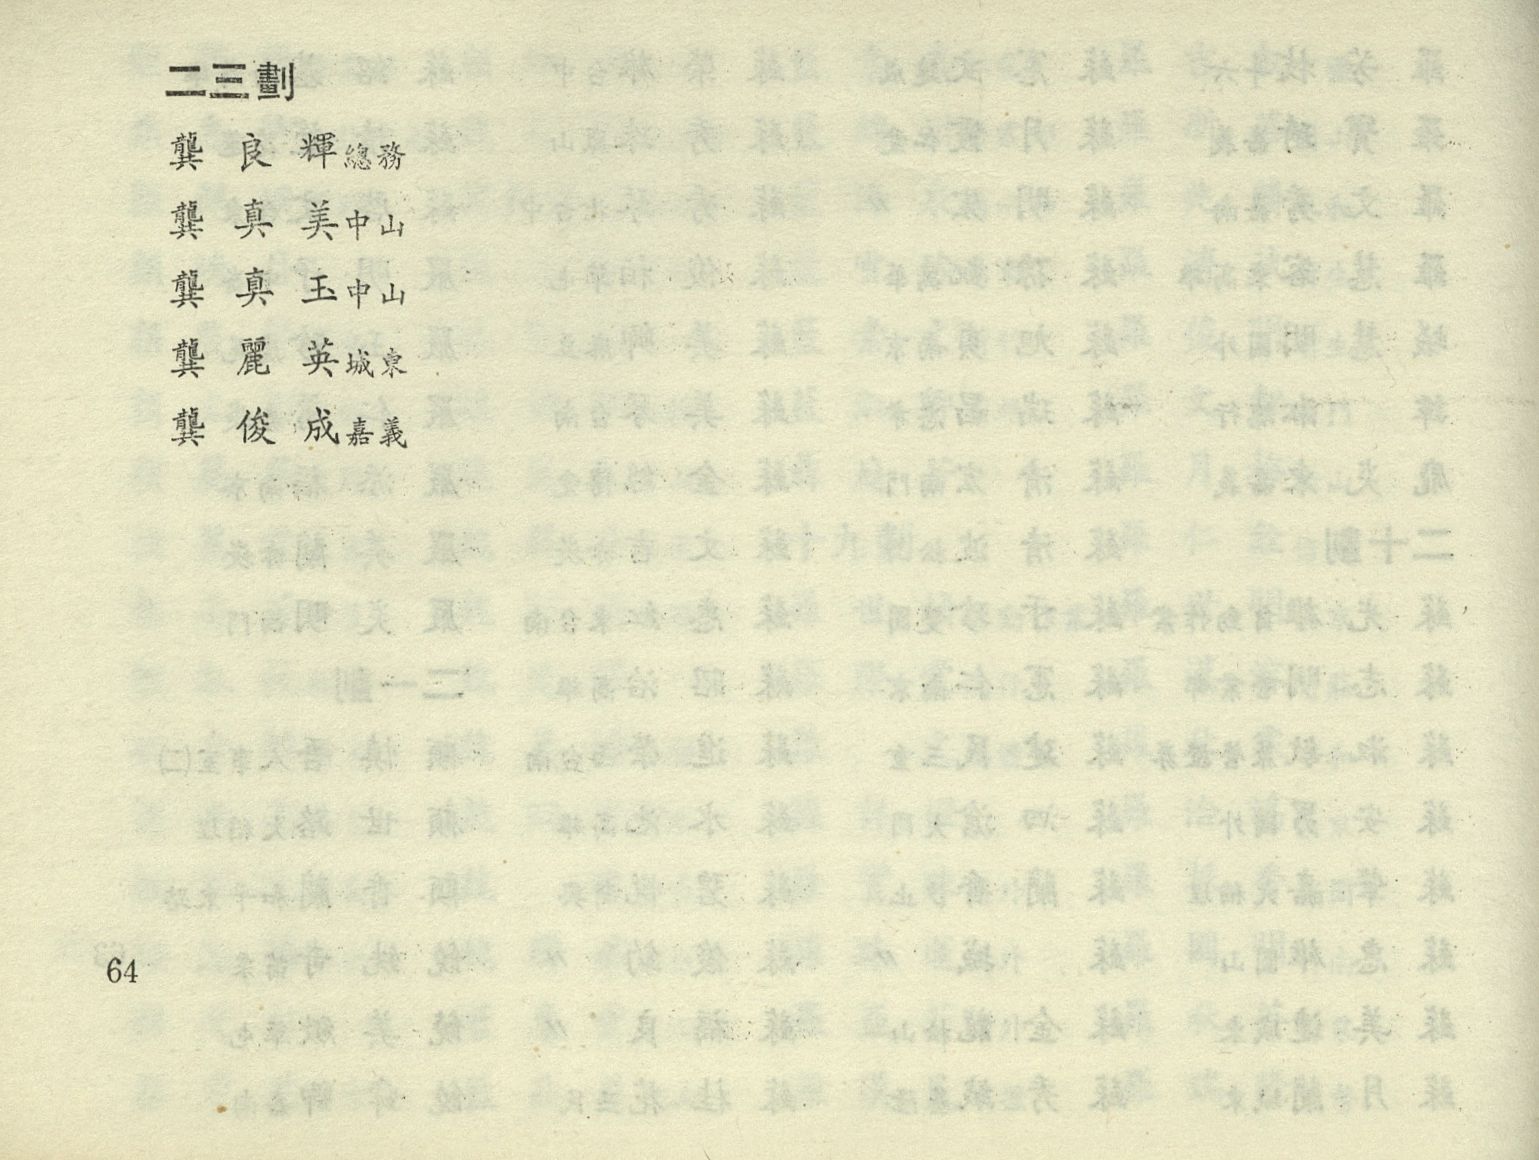 二三劃
龔良輝總務
龔真美中山
龔真玉中山
龔麗英城東
龔俊成嘉義
64